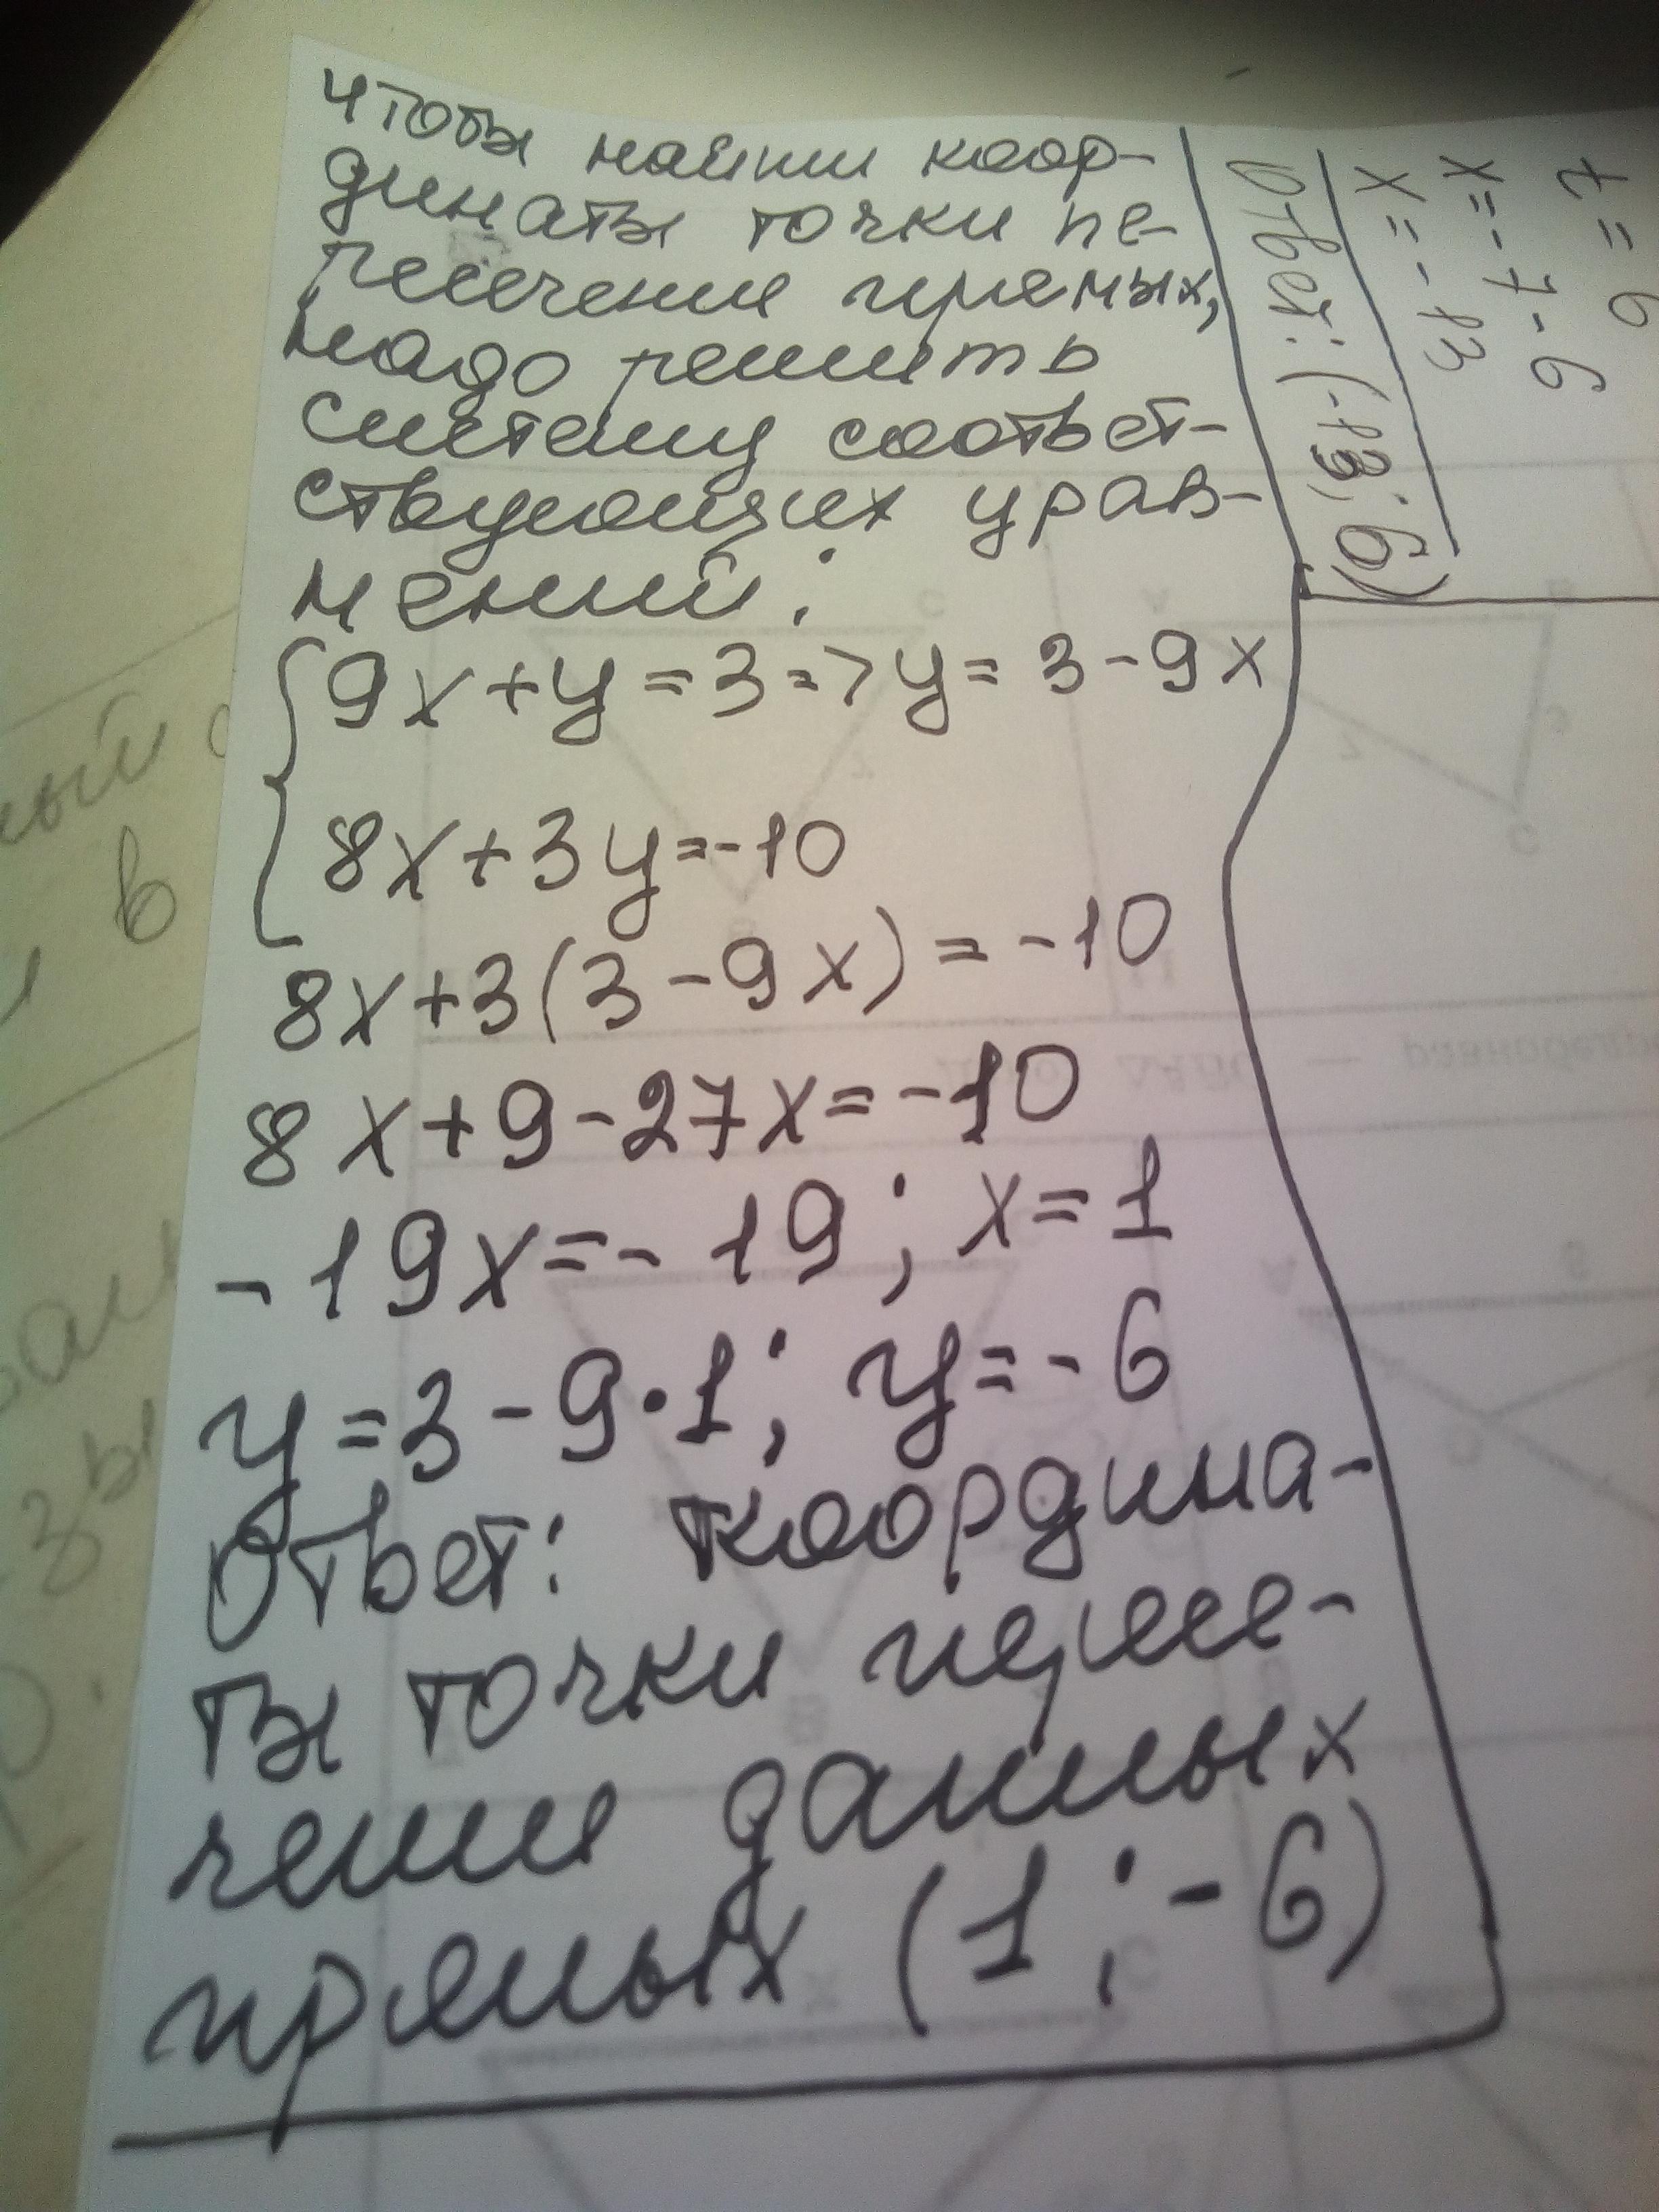 чтобы найти коор-
динаты точки пе-
ресечения прямых,
надо решить
систему соответ-
ствующих урав-
нений:
9x+y=3=>y=3-9x
8x+3y=-10
8x+3(3-9x)=-10
8x+9-27x=-10
-19x=-19; x=1
y=3-9·1; y=-6
Ответ: координа-
ты точки пересе-
чения данных
прямых (1;-6)
x=-7-6
x=-13
Ответ: (-13; 6)
ный
в
зы